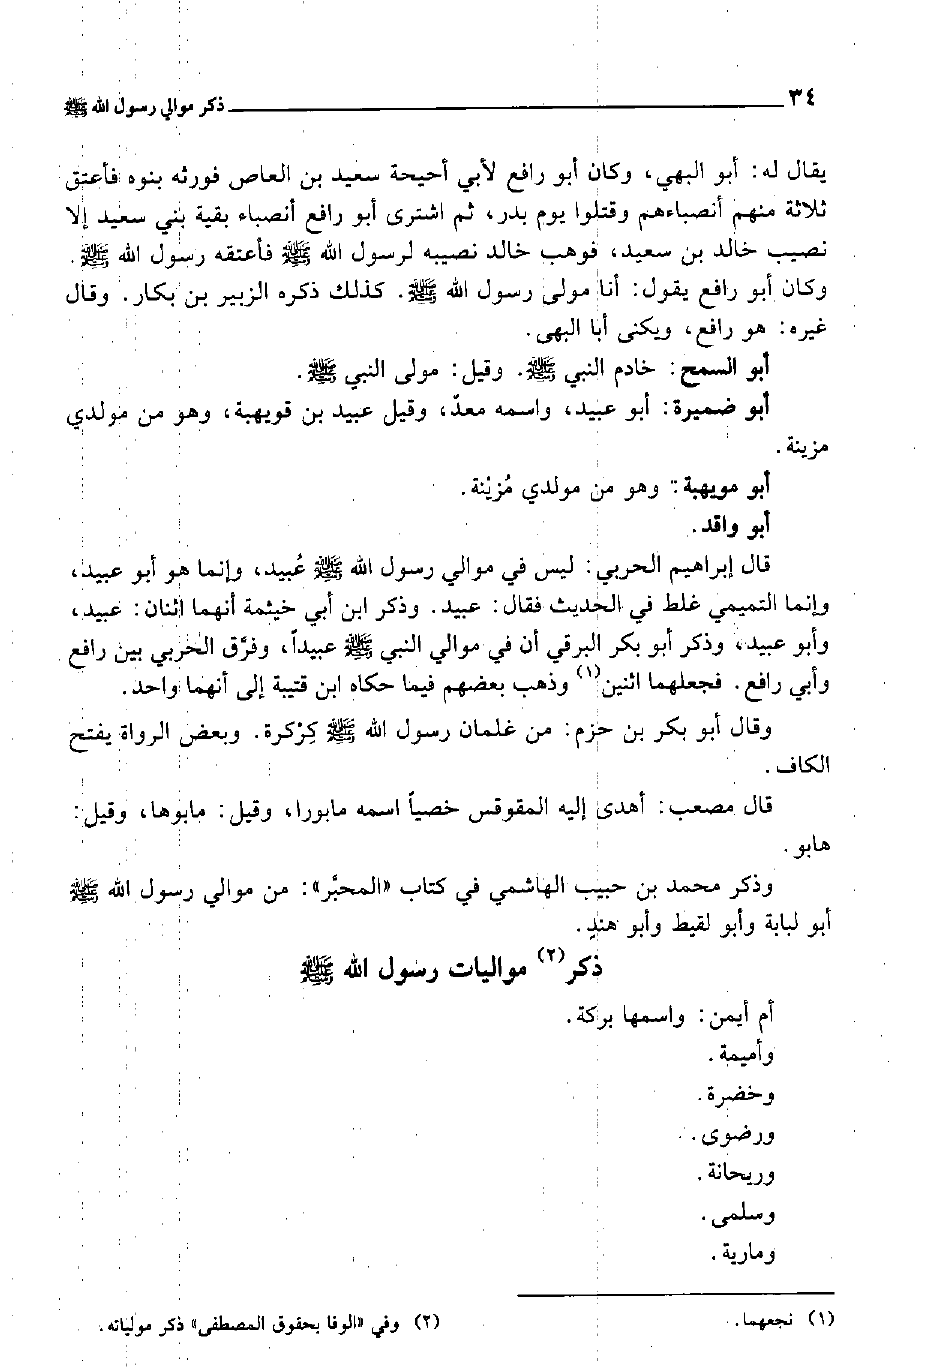 ٣٤ ذكر موالي رسول الله ﷺ
يقال له: أبو البهي، وكان أبو رافع لأبي أحيحة سعيد بن العاص فورثه بنوه فأعتق
ثلاثة منهم أنصباءهم وقتلوا يوم بدر، ثم اشترى أبو رافع أنصباء بقية بني سعيد إلا
نصيب خالد بن سعيد، فوهب خالد نصيبه لرسول الله ﷺ فأعتقه رسول الله ﷺ.
وكان أبو رافع يقول: أنا مولى رسول الله ﷺ. كذلك ذكره الزبير بن بكار. وقال
غيره: هو رافع، ويكنى أبا البهى.
أبو السمح: خادم النبي ﷺ. وقيل: مولى النبي ﷺ.
أبو ضميرة: أبو عبيد، واسمه معدّ، وقيل عبيد بن قويهبة، وهو من مولدي
مزينة.
أبو مويهبة: وهو من مولدي مُزيْنة.
أبو واقد.
قال إبراهيم الحربي: ليس في موالي رسول الله ﷺ عُبيد، وإنما هو أبو عبيد،
وإنما التميمي غلط في الحديث فقال: عبيد. وذكر ابن أبي خيثمة أنهما اثنان: عبيد،
وأبو عبيد، وذكر أبو بكر البرقي أن في موالي النبي ﷺ عبيداً، وفرَّق الحربي بين رافع
وأبي رافع. فجعلهما اثنين(١) وذهب بعضهم فيما حكاه ابن قتيبة إلى أنهما واحد.
وقال أبو بكر بن حزم: من غلمان رسول الله ﷺ كِرْكرة. وبعض الرواة يفتح
الكاف.
قال مصعب: أهدى إليه المقوقس خصياً اسمه مابورا، وقيل: مابوها، وقيل:
هابو.
وذكر محمد بن حبيب الهاشمي في كتاب «المحبَّر»: من موالي رسول الله ﷺ
أبو لبابة وأبو لقيط وأبو هندٍ.
ذكر(٢) مواليات رسول الله ﷺ
أم أيمن: واسمها بركة.
وأميمة.
وخضرة.
ورضوى.
وريحانة.
وسلمى.
ومارية.
(١) نجعهما. (٢) وفي «الوفا بحقوق المصطفى» ذكر مولياته.